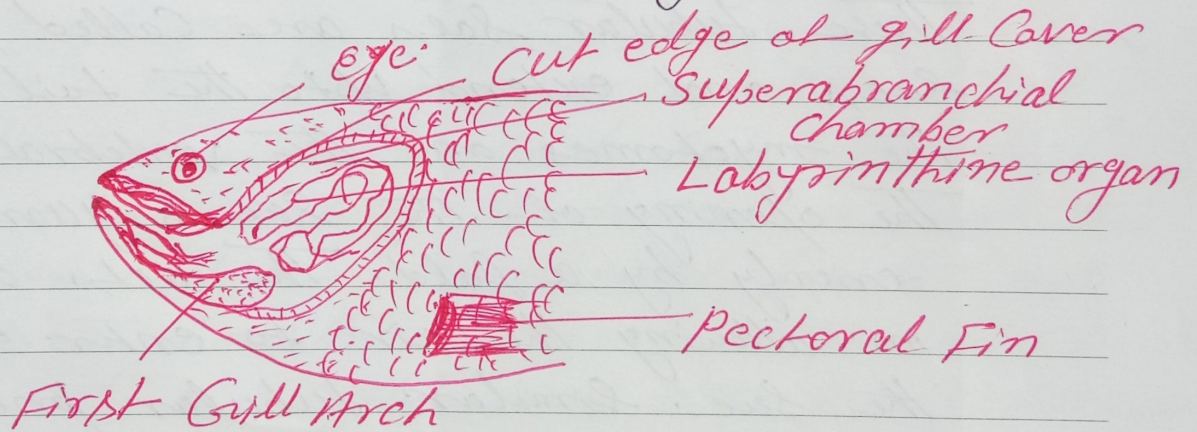 eye.
Cut edge of gill Cover
Superabranchial
chamber
Labyrinthine organ
Pectoral Fin
First Gill Arch